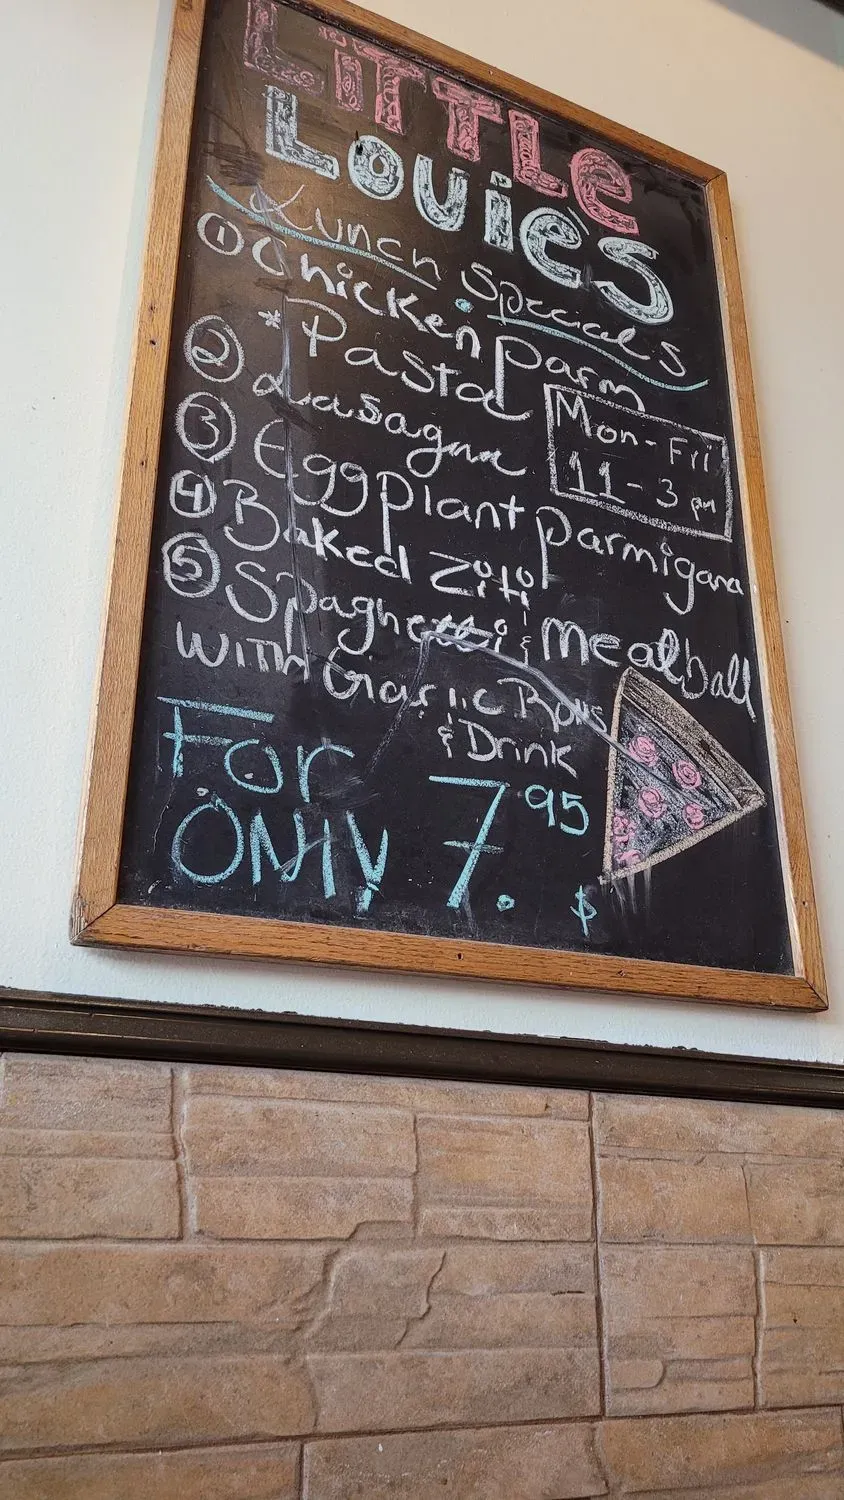 LiTTLe
Louie's
Lunch Specials
① Chicken parm
* Pasta
② Lasagna
Mon-Fri
11-3 pm
③ Eggplant parmigana
④ Baked Ziti
⑤ Spaghetti & Meatball
WITH Garlic Rolls
& Drink
For
ONly 7.95
$